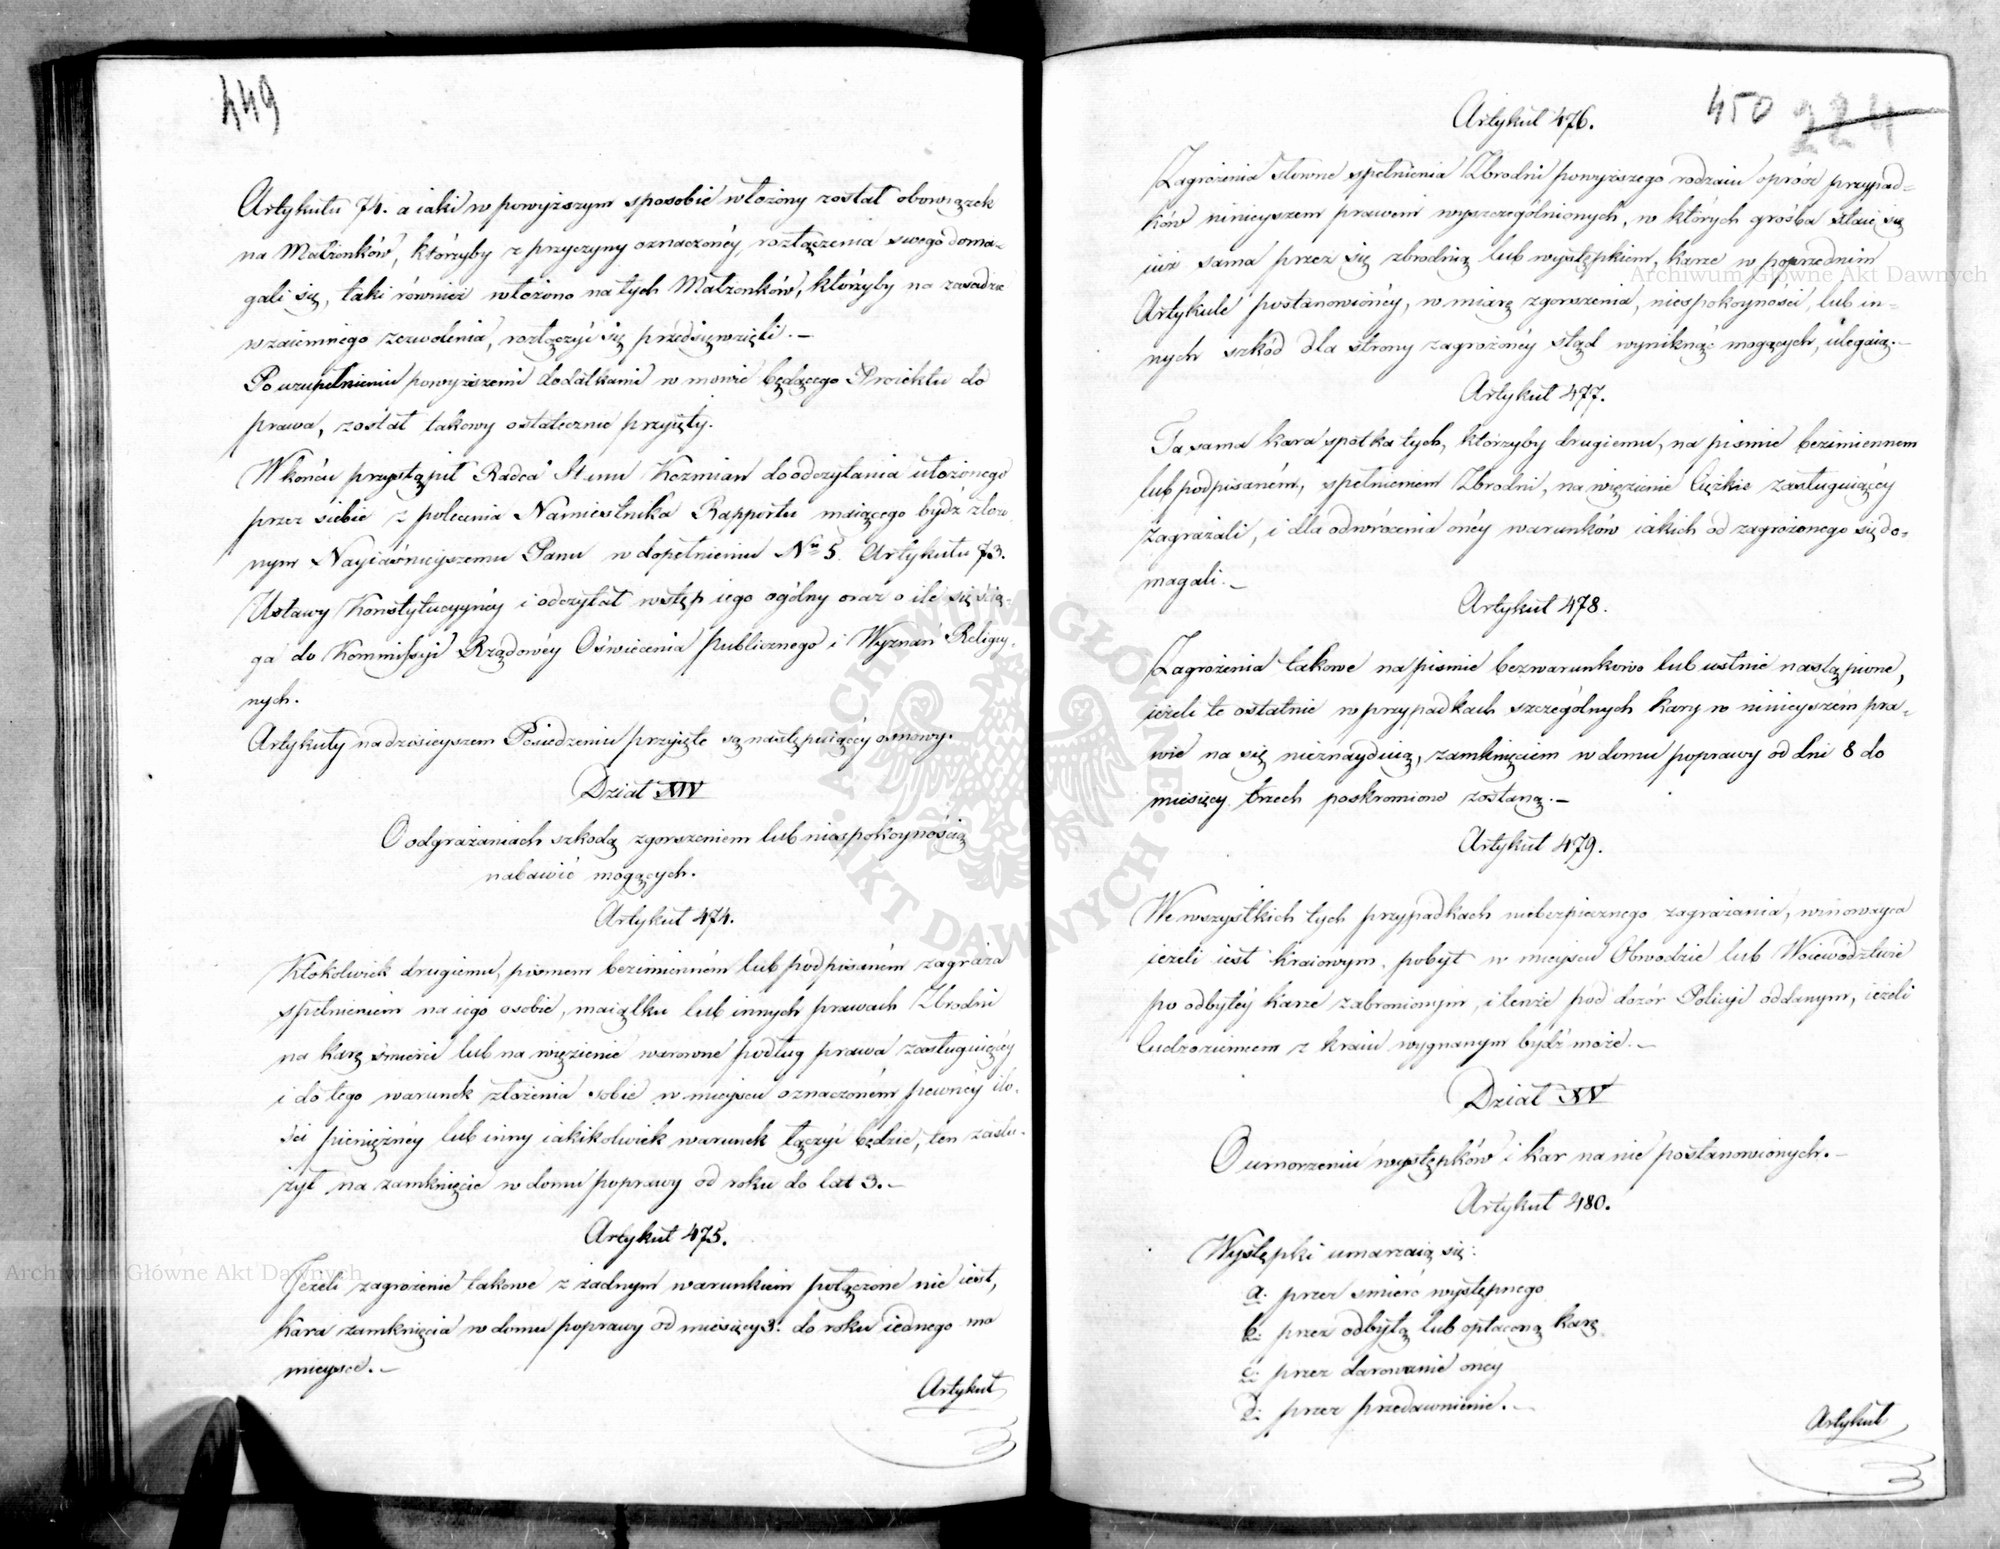 449
Artykułu 74. a iaki w powyższym sposobie włożony został obowiązek
na Małżonków, którzyby z przyczyny oznaczonéy, rozłączenia swego doma-
gali się, taki również włożono na tych Małżonków, którzyby na zasadzie
wzaiemnego zezwolenia, rozłączyć się przedsięwzięli.—
Po uzupełnieniu powyższemi dodatkami w mowie będącego Proiektu do
prawa, został takowy ostatecznie przyięty.
W końcu przystąpił Radca Stanu Kozmian do odczytania ułożonego
przez siebie z polecenia Namiestnika Rapportu maiącego bydź złożo-
nym Nayiaśnieyszemu Panu w dopełnieniu Nu 5. Artykułu 73.
Ustawy Konstytucyynéy i odczytał wstęp iego ogólny oraz o ile się ścią-
ga do Kommissyi Rządowéy Oświecenia publicznego i Wyznań Religiy-
nych.
Artykuły na dzisieyszem Posiedzeniu przyięte są następuiącéy osnowy.
Dział XIV
O odgrażaniach szkodą zgorszeniem lub niespokoynością
nabawić mogących.
Artykuł 474.
Ktokolwiek drugiemu, pismem bezimienném lub podpisaném zagraża
spełnieniem na iego osobie, maiątku lub innych prawach Zbrodni
na karę śmierci lub na więzienie warowne podług prawa zasługuiącéy
i do tego warunek złożenia sobie w mieyscu oznaczoném pewnéy ilo-
ści pieniężnéy lub inny iakikolwiek warunek łączyć będzie, ten zasłu-
żył na zamknięcie w domu poprawy od roku do lat 3.—
Artykuł 475.
Jeżeli zagrożenie takowe z żadnym warunkiem połączone nie iest,
kara zamknięcia w domu poprawy od miesięcy 3. do roku iednego ma
mieysce.—
Artykuł
450 224
Artykuł 476.
Zagrożenia słowne spełnienia Zbrodni powyższego rodzaiu oprócz przypad-
ków ninieyszem prawem wyszczególnionych, w których groźba staie się
iuż sama przez się zbrodnią lub występkiem, karze w poprzednim
Artykule postanowionéy, w miarę zgorszenia, niespokoyności, lub in-
nych szkód dla strony zagrożonéy stąd wyniknąć mogących, ulegaią.—
Artykuł 477.
Ta sama kara spotka tych, którzyby drugiemu, na pismie bezimiennem
lub podpisaném, spełnieniem Zbrodni, na więzienie Ciężkie zasługuiącéy
zagrażali, i dla odwrócenia onéy warunków iakich od zagrożonego się do-
magali.—
Artykuł 478.
Zagrożenia takowe na pismie bezwarunkowo lub ustnie nastąpione,
ieżeli te ostatnie w przypadkach szczególnych kary w ninieyszém pra-
wie na się nieznayduią, zamknięciem w domu poprawy od dni 8 do
miesięcy trzech poskromione zostaną.—
Artykuł 479.
We wszystkich tych przypadkach niebezpiecznego zagrażania, winowayca
ieżeli iest kraiowym, pobyt w mieyscu Obwodzie lub Woiewództwie
po odbytéy karze zabronionym, i tenże pod dozór Policyi oddanym, ieżeli
Cudzoziemcem z kraiu wygnanym bydź może.—
Dział XV
O umorzeniu występków i kar na nie postanowionych.—
Artykuł 480.
Występki umarzaią się:
a. przez śmierć występnego
b. przez odbytą lub opłaconą karę
c. przez darowanie onéy
d. przez przedawnienie.—
Artykuł
Archiwum Główne Akt Dawnych
Archiwum Główne Akt Dawnych
ARCHIWUM GŁÓWNE AKT DAWNYCH